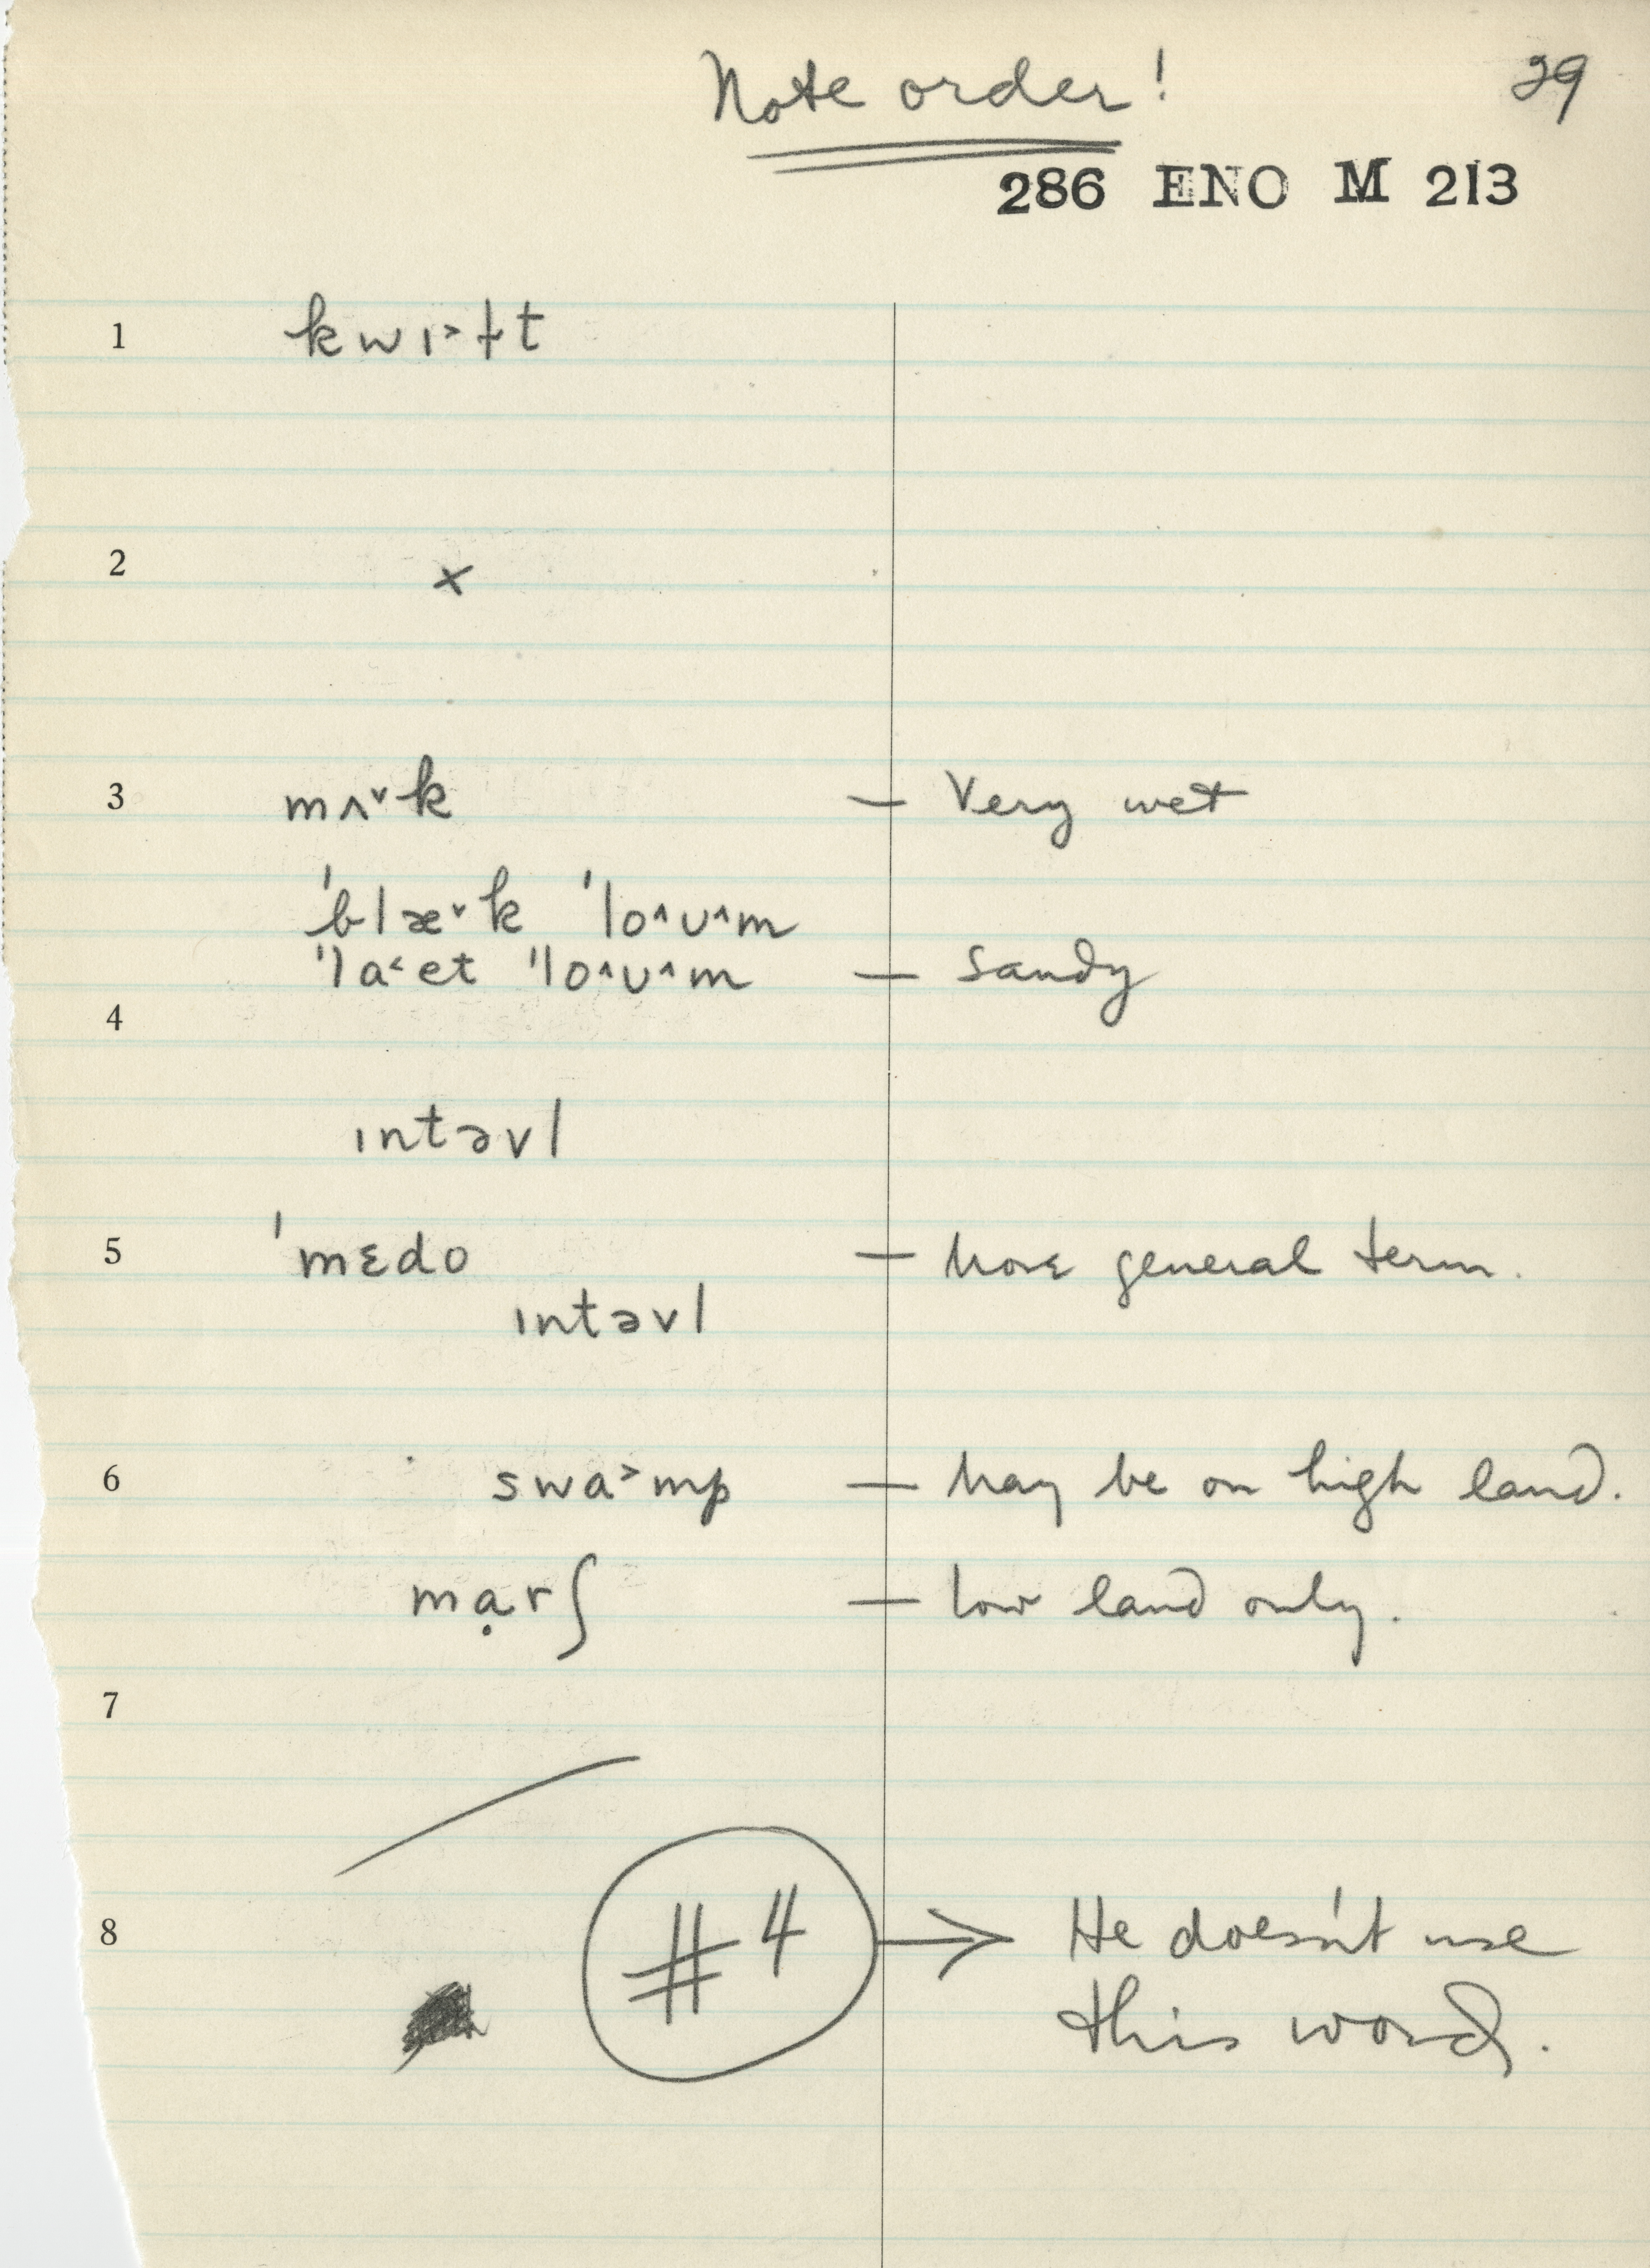 Note order! 29
286 ENO M 213
1 kwɪ˃ɫt
2 ×
3 mʌ˅k — Very wet
ˈblæ˅k ˈlo˄ʊ˄m
ˈˈla˂et ˈˈlo˄ʊ˄m — sandy
4
ɪntəvl
5 ˈmɛdo — more general term.
ɪntəvl
6 swa˃mp — may be on high land.
mạrʃ — low land only.
7
8 #4 → He doesn't use
this word.